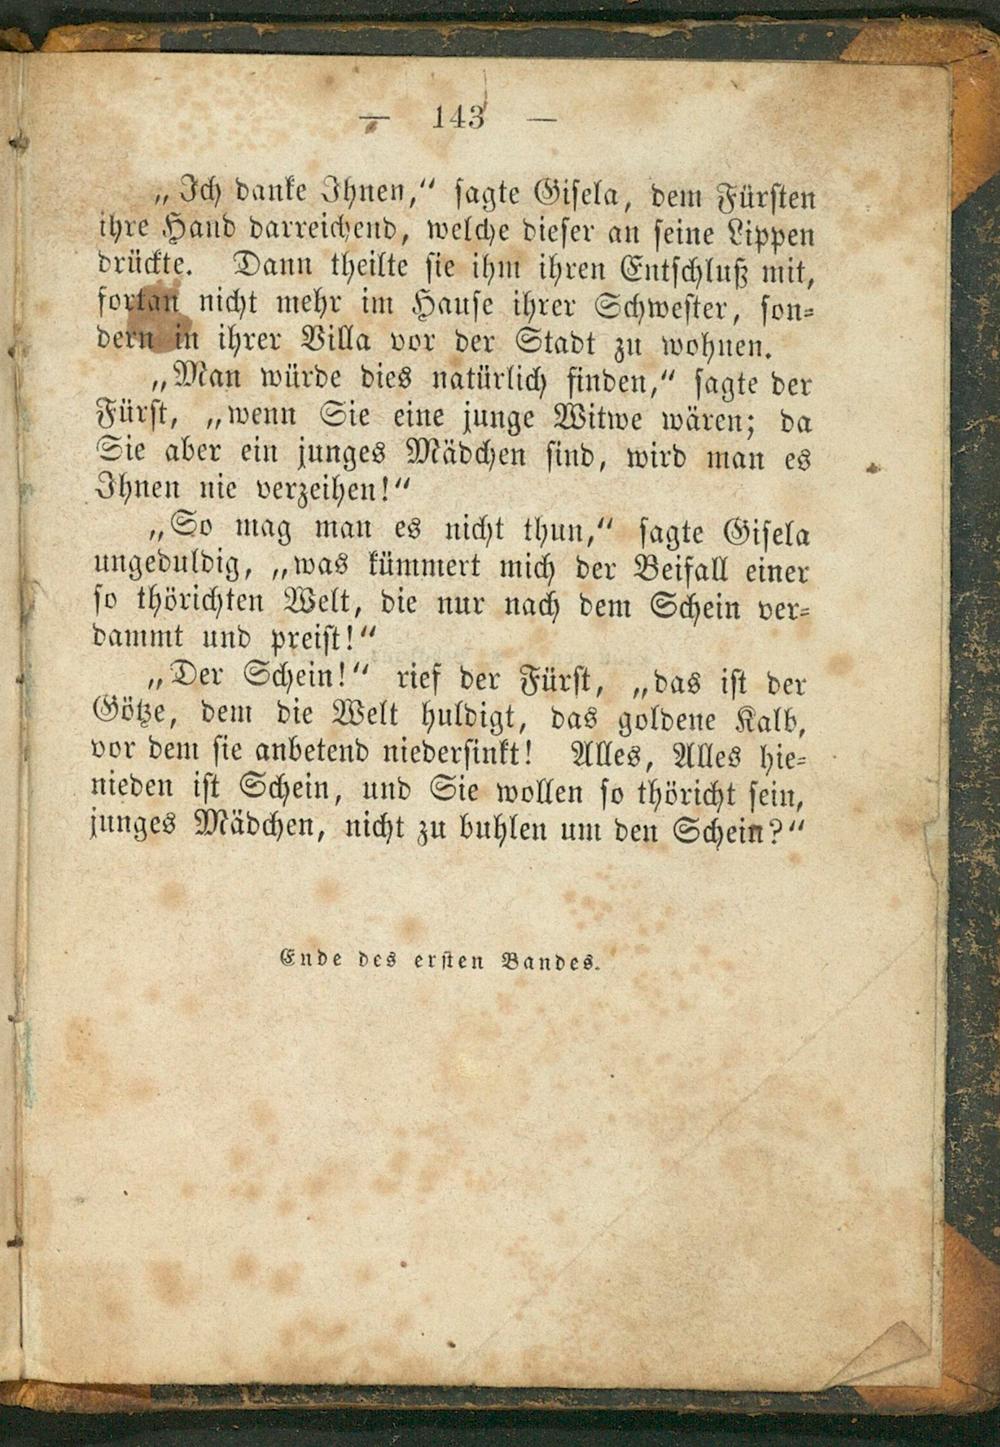 — 143 —
„Ich danke Ihnen,“ sagte Gisela, dem Fürsten
ihre Hand darreichend, welche dieser an seine Lippen
drückte. Dann theilte sie ihm ihren Entschluß mit,
fortan nicht mehr im Hause ihrer Schwester, son-
dern in ihrer Villa vor der Stadt zu wohnen.
„Man würde dies natürlich finden,“ sagte der
Fürst, „wenn Sie eine junge Witwe wären; da
Sie aber ein junges Mädchen sind, wird man es
Ihnen nie verzeihen!“
„So mag man es nicht thun,“ sagte Gisela
ungeduldig, „was kümmert mich der Beifall einer
so thörichten Welt, die nur nach dem Schein ver-
dammt und preist!“
„Der Schein!“ rief der Fürst, „das ist der
Götze, dem die Welt huldigt, das goldene Kalb,
vor dem sie anbetend niedersinkt! Alles, Alles hie-
nieden ist Schein, und Sie wollen so thöricht sein,
junges Mädchen, nicht zu buhlen um den Schein?“
Ende des ersten Bandes.